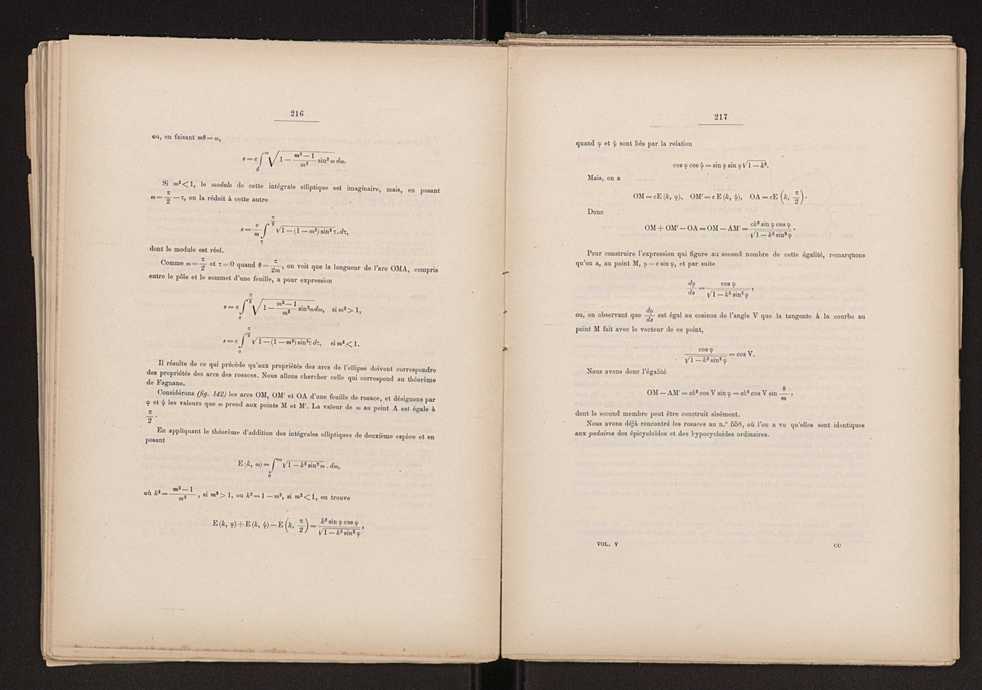 216
ou, en faisant mθ = ω,
s = c ∫₀^ω √(1 − (m² − 1)/m² sin² ω) dω.
Si m² < 1, le module de cette intégrale elliptique est imaginaire, mais, en posant
ω = π/2 − τ, on la réduit à cette autre
s = c/m ∫_τ^(π/2) √(1 − (1 − m²) sin² τ) . dτ,
dont le module est réel.
Comme ω = π/2 et τ = 0 quand θ = π/2m, on voit que la longueur de l'arc OMA, compris
entre le pôle et le sommet d'une feuille, a pour expression
s = c ∫₀^(π/2) √(1 − (m² − 1)/m² sin² ω) dω, si m² > 1,
s = c ∫₀^(π/2) √(1 − (1 − m²) sin² τ) dτ, si m² < 1.
Il résulte de ce qui précède qu'aux propriétés des arcs de l'ellipse doivent correspondre
des propriétés des arcs des rosaces. Nous allons chercher celle qui correspond au théorème
de Fagnano.
Considérons (fig. 142) les arcs OM, OM' et OA d'une feuille de rosace, et désignons par
φ et ψ les valeurs que ω prend aux points M et M'. La valeur de ω au point A est égale à
π/2.
En appliquant le théorème d'addition des intégrales elliptiques de deuxième espèce et en
posant
E (k, ω) = ∫₀^ω √(1 − k² sin² ω) . dω,
où k² = (m² − 1)/m², si m² > 1, ou k² = 1 − m², si m² < 1, on trouve
E (k, φ) + E (k, ψ) − E (k, π/2) = k² sin φ cos φ / √(1 − k² sin² φ),
217
quand φ et ψ sont liés par la relation
cos φ cos ψ = sin φ sin ψ √(1 − k²).
Mais, on a
OM = cE (k, φ), OM' = c E (k, ψ), OA = cE (k, π/2).
Donc
OM + OM' − OA = OM − AM' = ck² sin φ cos φ / √(1 − k² sin² φ).
Pour construire l'expression qui figure au second nombre de cette égalité, remarquons
qu'on a, au point M, ρ = c sin φ, et par suite
dρ/ds = cos φ / √(1 − k² sin² φ),
ou, en observant que dρ/ds est égal au cosinus de l'angle V que la tangente à la courbe au
point M fait avec le vecteur de ce point,
cos φ / √(1 − k² sin² φ) = cos V.
Nous avons donc l'égalité
OM − AM' = ck² cos V sin φ = ck² cos V sin θ/m,
dont le second membre peut être construit aisément.
Nous avons déjà rencontré les rosaces au n.º 558, où l'on a vu qu'elles sont identiques
aux podaires des épicycloïdes et des hypocycloïdes ordinaires.
VOL. V
CC